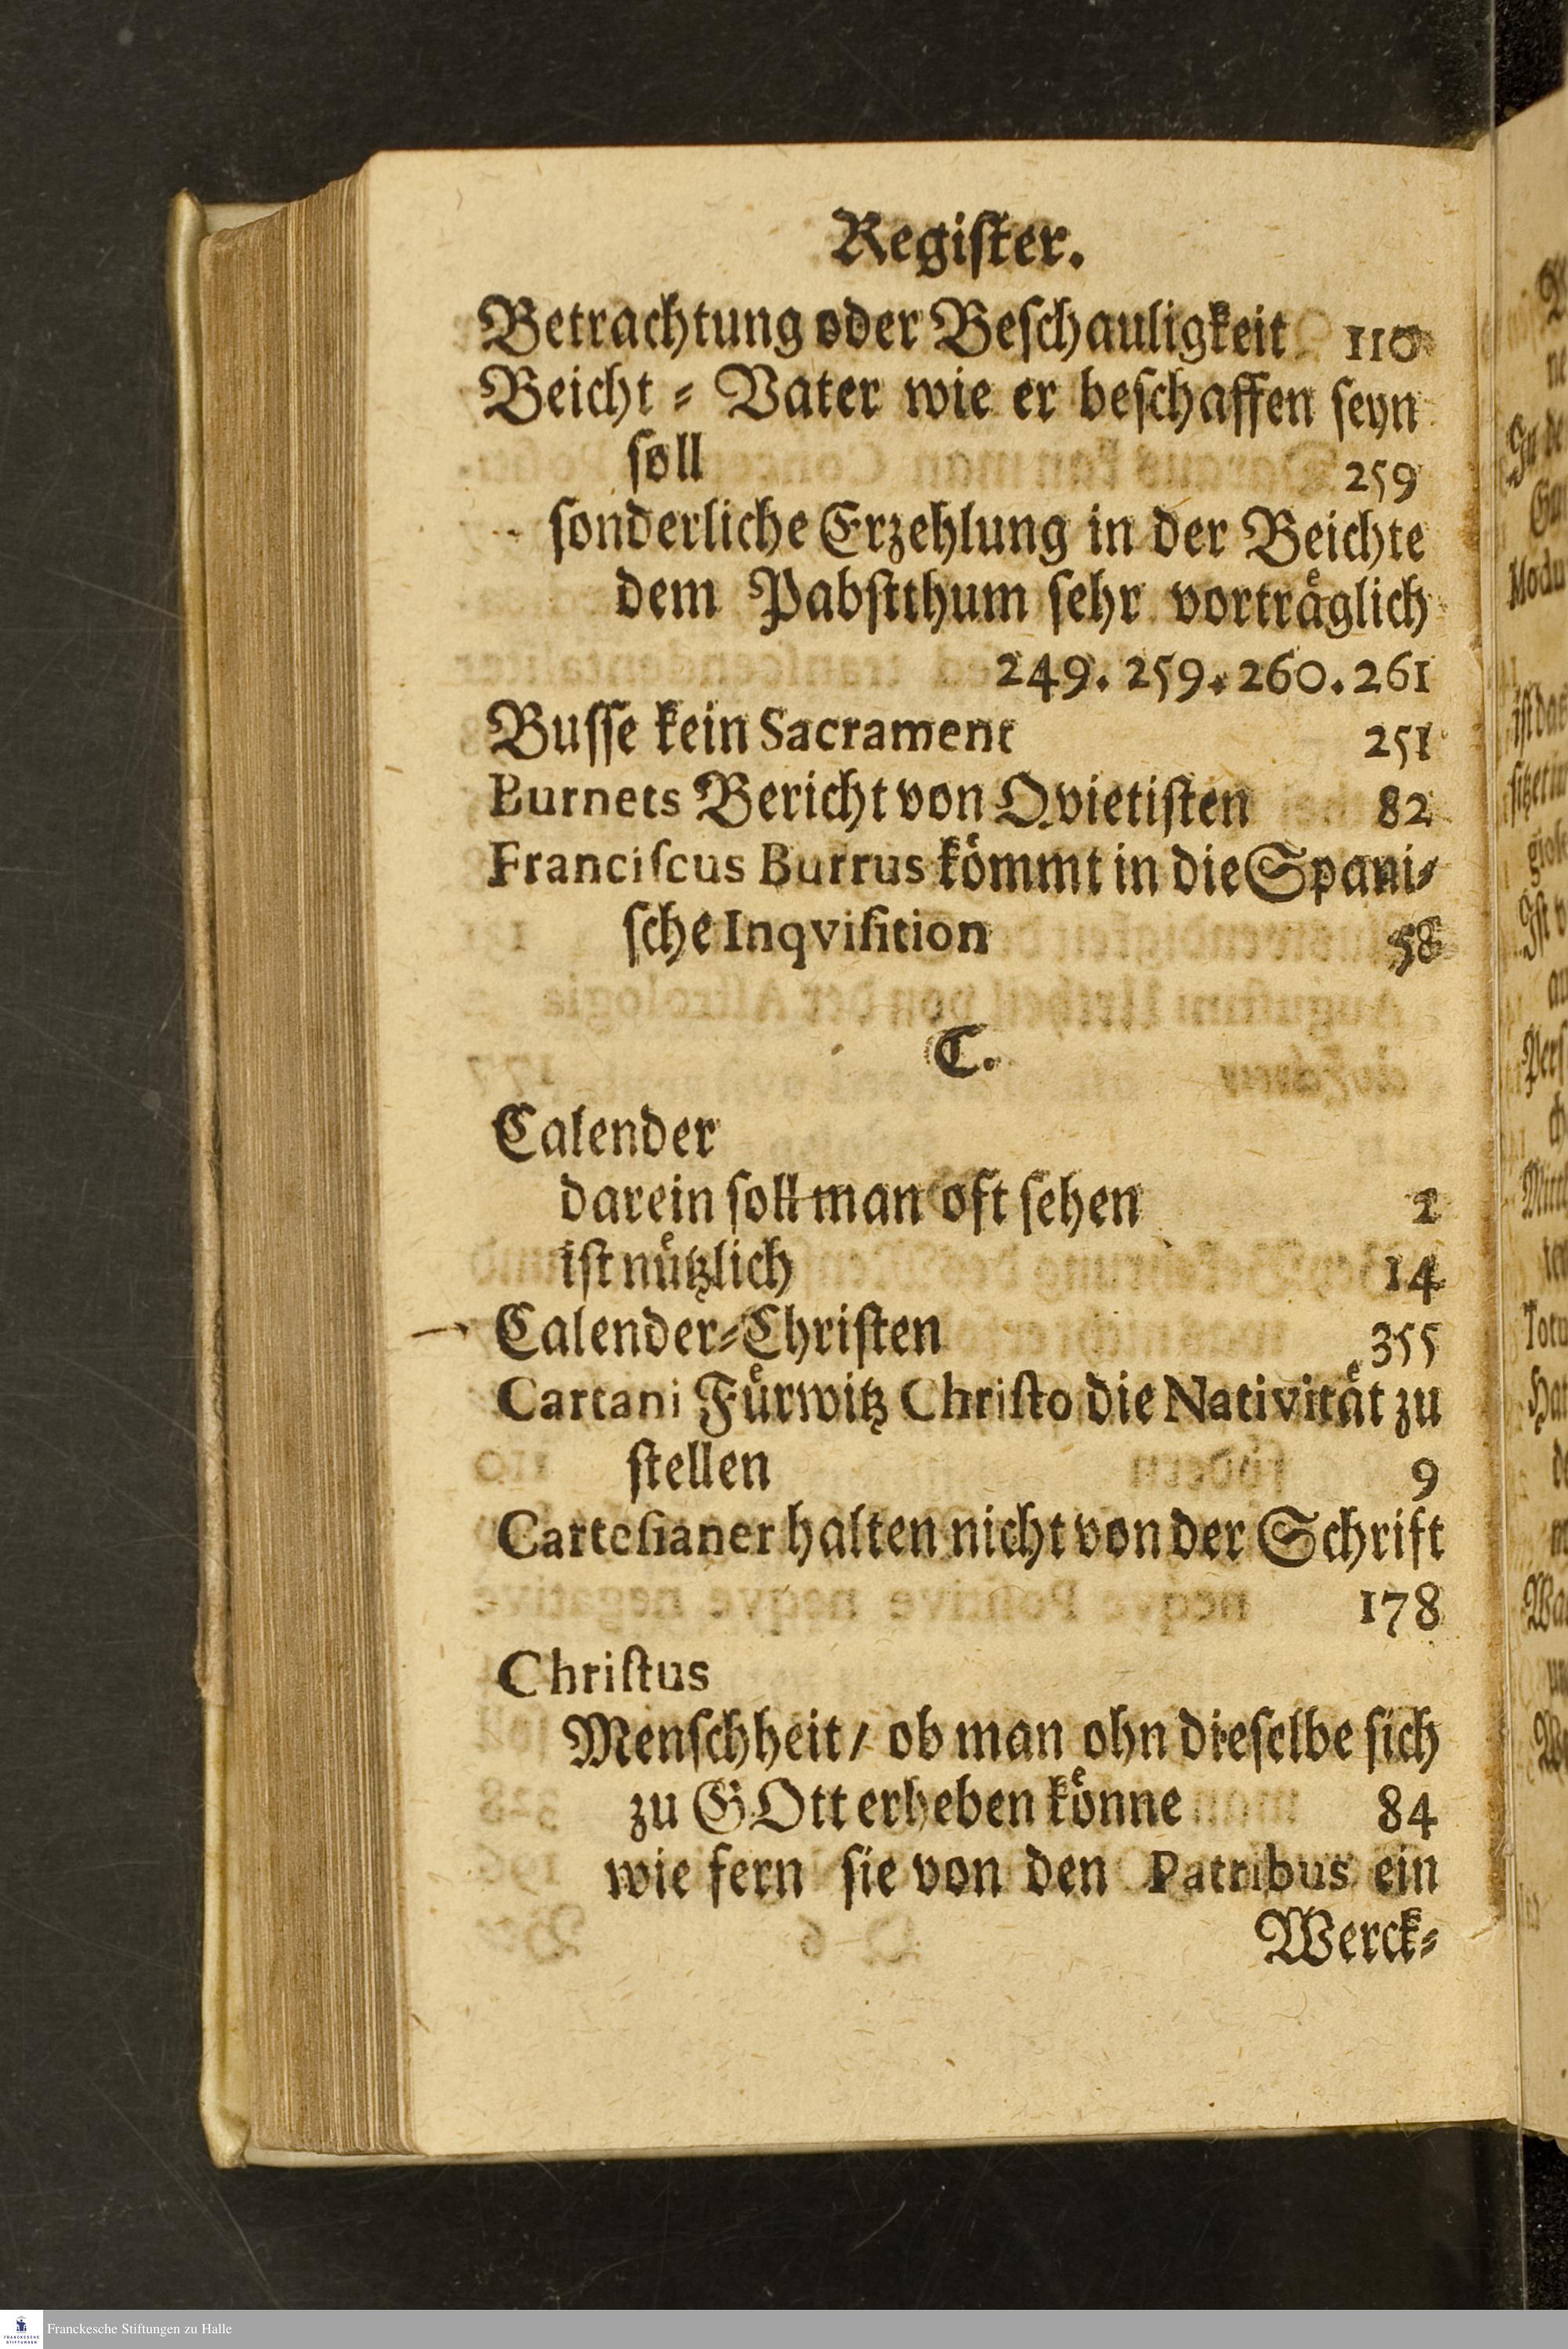 Regiſter.
Betrachtung oder Beſchauligkeit 110
Beicht⸗Vater wie er beſchaffen ſeyn
ſoll 259
ſonderliche Erzehlung in der Beichte
dem Pabſtthum ſehr vortraͤglich
249. 259. 260. 261
Buſſe kein Sacrament 251
Burnets Bericht von Qvietiſten 82
Franciſcus Burrus koͤmmt in die Spani⸗
ſche Inqviſition 58
C.
Calender
darein ſoll man oft ſehen 2
iſt nuͤtzlich 14
Calender⸗Chriſten 355
Cartani Fuͤrwitz Chriſto die Nativitaͤt zu
ſtellen 9
Carteſianer halten nicht von der Schrift
178
Chriſtus
Menſchheit / ob man ohn dieſelbe ſich
zu GOtt erheben koͤnne 84
wie fern ſie von den Patribus ein
Werck⸗
Franckesche Stiftungen zu Halle